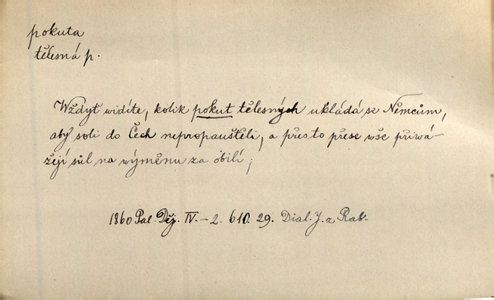 pokuta
tělesná p.
Wždyť widíte, kolik pokut tělesných ukládá se Němcům,
aby soli do Čech nepropauštěli, a přesto přese wše přiwá-
žejí sůl na wýměnu za obilí;
1860 Pal. Děj. IV.–2. 29. Dial. J. z Rab.